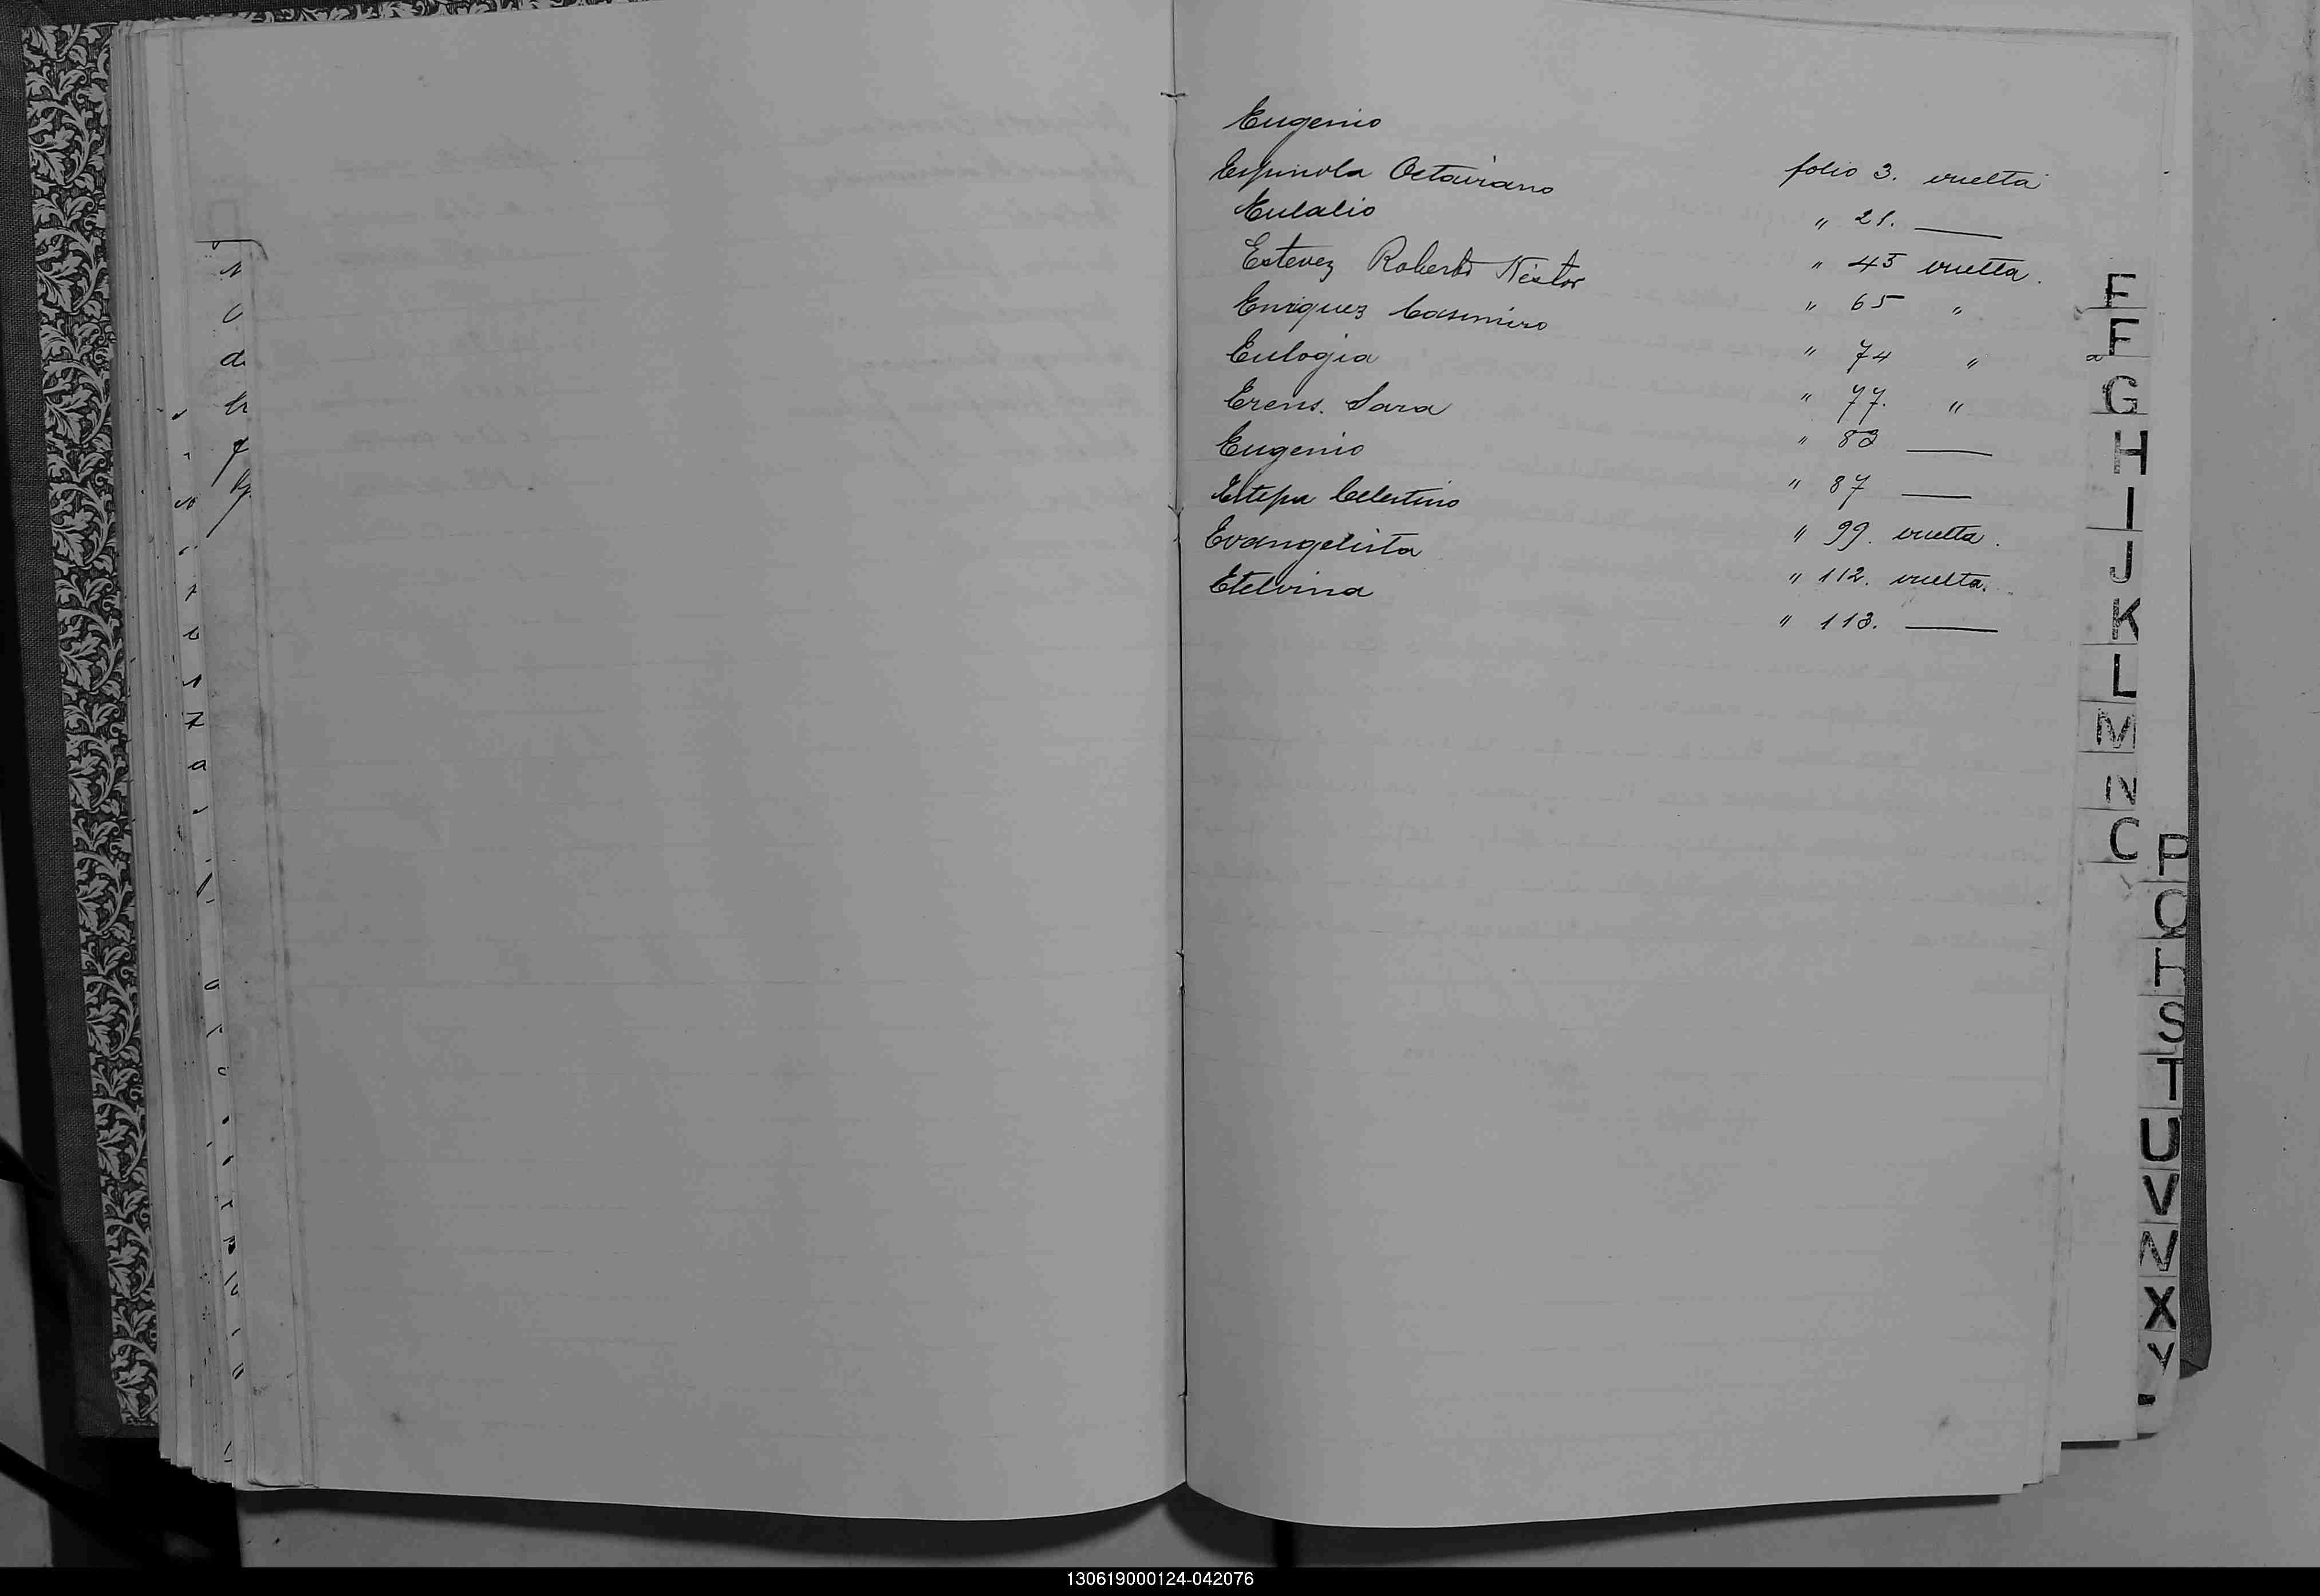 Eugenio folio 3. vuelta
Espinola Octaviano " 21. —
Eulalio " 45 vuelta.
Estevez Roberto Néstor " 65 "
Enriquez Casimiro " 74 "
Eulogia " 77. "
Erens. Sara " 83 —
Eugenio " 87 —
Estepa Celestino " 99. vuelta.
Evangelista " 112. vuelta.
Etelvina " 113. —
E
F
G
H
I
J
K
L
M
N
O
P
Q
R
S
T
U
V
W
X
Y
130619000124-042076